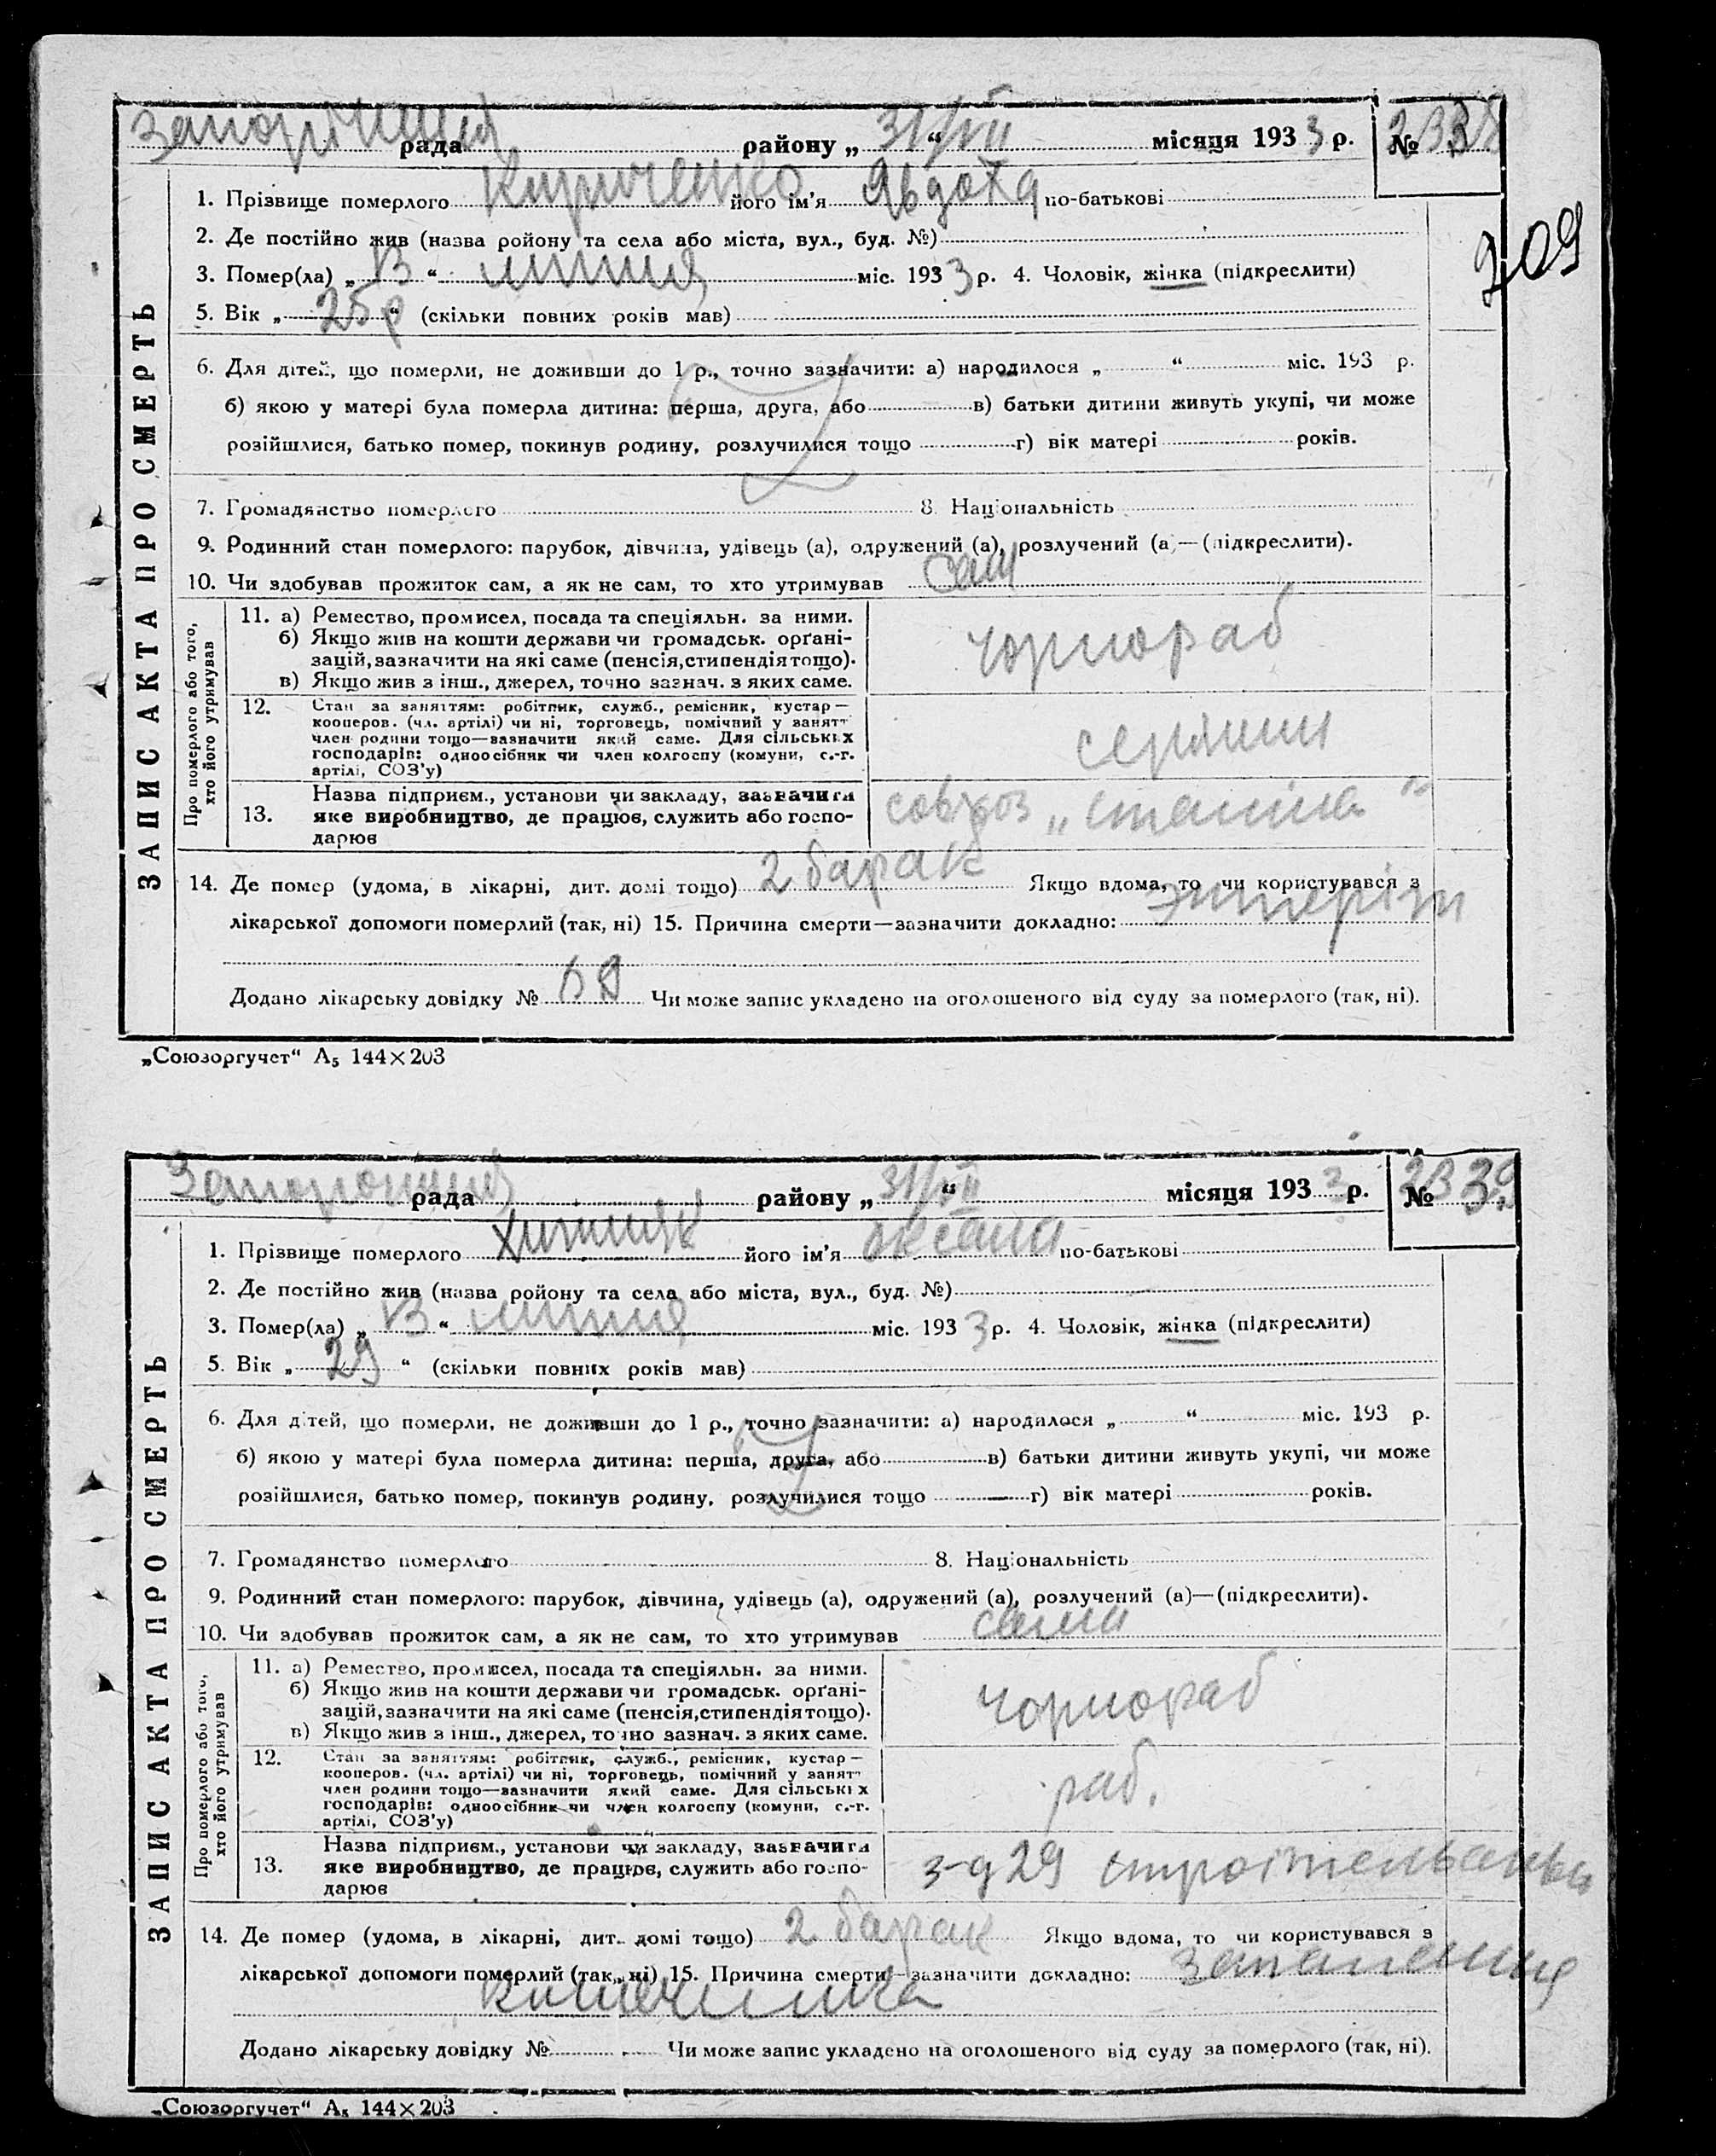 рада району „31/VII“ місяця 1933 р. № 2338
209
ЗАПИС АКТА ПРО СМЕРТЬ
1. Прізвище померлого Кириченко його ім'я Явдоха по-батькові
2. Де постійно жив (назва ройону та села або міста, вул., буд. №)
3. Помер(ла) „ “ липня міс. 1933 р. 4. Чоловік, жінка (підкреслити)
5. Вік „25 р“ (скільки повних років мав)
6. Для дітей, що померли, не доживши до 1 р., точно зазначити: а) народилося „ “ міс. 193 р.
б) якою у матері була померла дитина: перша, друга, або в) батьки дитини живуть укупі, чи може
розійшлися, батько помер, покинув родину, розлучилися тощо г) вік матері років.
7. Громадянство померлого 8. Національність
9. Родинний стан померлого: парубок, дівчина, удівець (а), одружений (а), розлучений (а)—(підкреслити).
10. Чи здобував прожиток сам, а як не сам, то хто утримував сам
Про померлого або того, хто його утримував
11. а) Ремество, промисел, посада та спеціяльн. за ними.
б) Якщо жив на кошти держави чи громадськ. орґані-
зацій, зазначити на які саме (пенсія, стипендія тощо).
в) Якщо жив з інш., джерел, точно зазнач. з яких саме.
чорнораб
12. Стан за заняттям: робітник, служб., ремісник, кустар—
кооперов. (чл. артілі) чи ні, торговець, помічний у занятт
член родини тощо—зазначити який саме. Для сільських
господарів: одноосібник чи член колгоспу (комуни, с.-г.
артілі, СОЗ'у)
13. Назва підприєм., установи чи закладу, зазначити
яке виробництво, де працює, служить або госпо-
дарює
совхоз „Сталіна“
14. Де помер (удома, в лікарні, дит. домі тощо) 2 барак Якщо вдома, то чи користувався з
лікарської допомоги померлий (так, ні) 15. Причина смерти—зазначити докладно: энтеріт
Додано лікарську довідку № Чи може запис укладено на оголошеного від суду за померлого (так, ні).
„Союзоргучет“ А₅ 144×203
рада району „31/VII“ місяця 1933 р. № 2339
ЗАПИС АКТА ПРО СМЕРТЬ
1. Прізвище померлого його ім'я Оксана по-батькові
2. Де постійно жив (назва ройону та села або міста, вул., буд. №)
3. Помер(ла) „ “ липня міс. 1933 р. 4. Чоловік, жінка (підкреслити)
5. Вік „29“ (скільки повних років мав)
6. Для дітей, що померли, не доживши до 1 р., точно зазначити: а) народилося „ “ міс. 193 р.
б) якою у матері була померла дитина: перша, друга, або в) батьки дитини живуть укупі, чи може
розійшлися, батько помер, покинув родину, розлучилися тощо г) вік матері років.
7. Громадянство померлого 8. Національність
9. Родинний стан померлого: парубок, дівчина, удівець (а), одружений (а), розлучений (а)—(підкреслити).
10. Чи здобував прожиток сам, а як не сам, то хто утримував сама
Про померлого або того, хто його утримував
11. а) Ремество, промисел, посада та спеціяльн. за ними.
б) Якщо жив на кошти держави чи громадськ. орґані-
зацій, зазначити на які саме (пенсія, стипендія тощо).
в) Якщо жив з інш., джерел, точно зазнач. з яких саме.
чорнораб
12. Стан за заняттям: робітник, служб., ремісник, кустар—
кооперов. (чл. артілі) чи ні, торговець, помічний у занятт
член родини тощо—зазначити який саме. Для сільських
господарів: одноосібник чи член колгоспу (комуни, с.-г.
артілі, СОЗ'у)
раб.
13. Назва підприєм., установи чи закладу, зазначити
яке виробництво, де працює, служить або госпо-
дарює
з-д 29
14. Де помер (удома, в лікарні, дит. домі тощо) 2 барак Якщо вдома, то чи користувався з
лікарської допомоги померлий (так, ні) 15. Причина смерти—зазначити докладно: Запалення
кишечника
Додано лікарську довідку № Чи може запис укладено на оголошеного від суду за померлого (так, ні).
„Союзоргучет“ А₅ 144×203